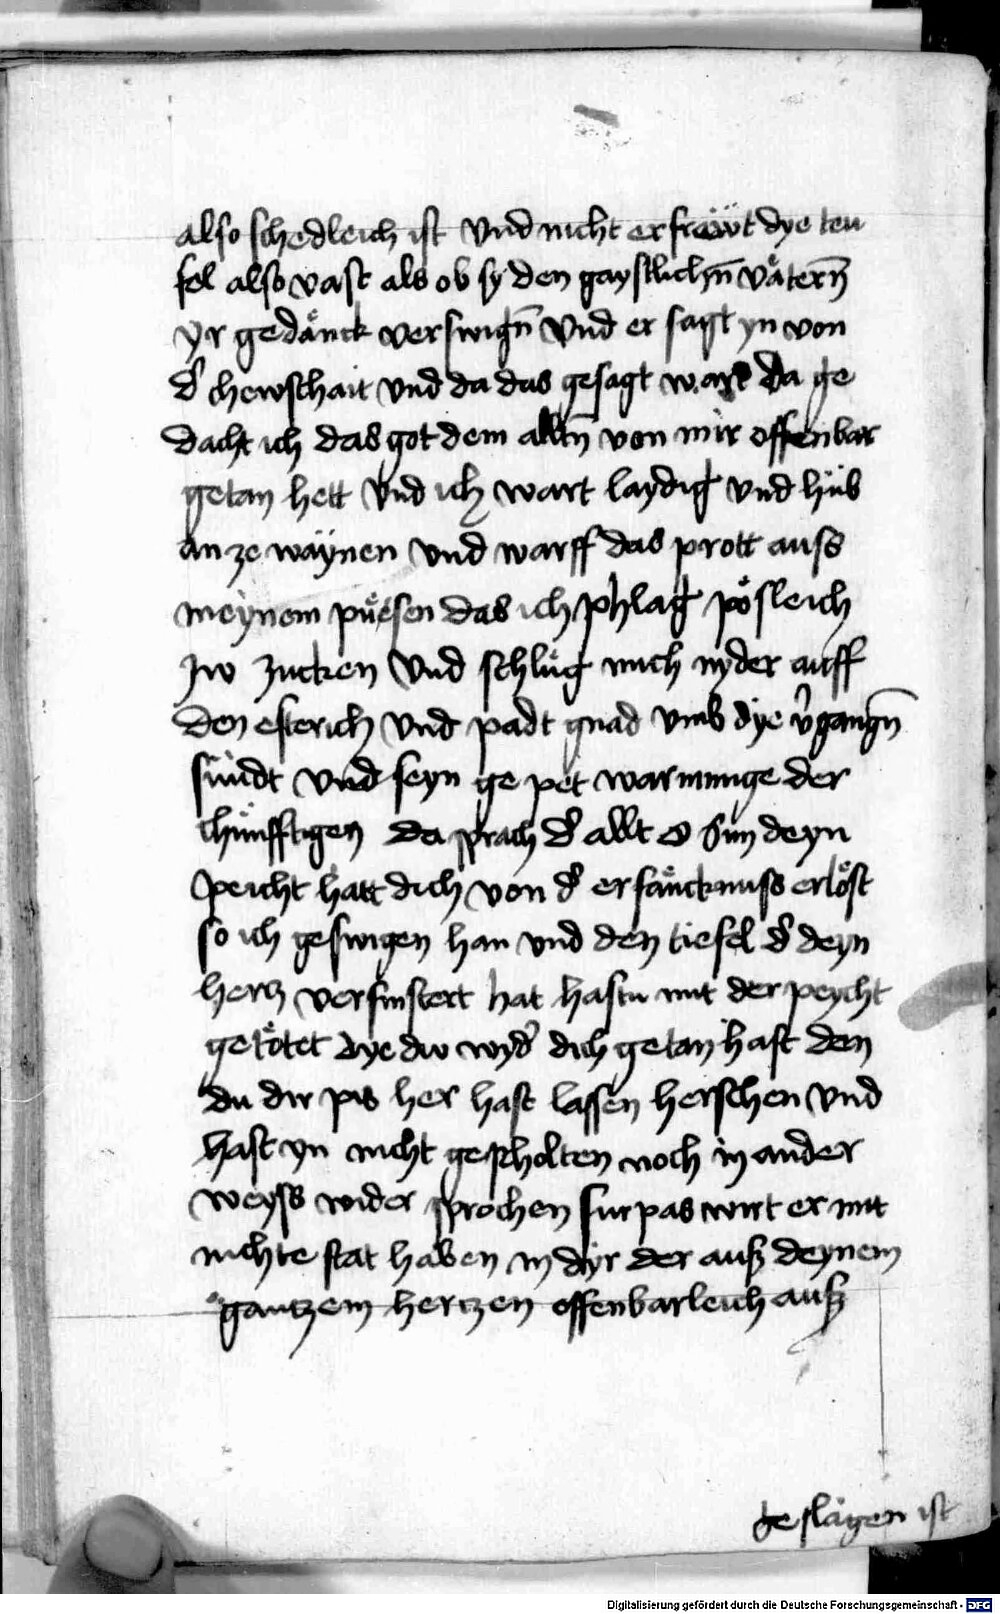 also schedleich ist vnd nicht erfräwt dye teu
fel also vast als ob sy den gaystlichn̄ vätern̄
yr gedänck verswign̄ vnd er sagt yn von
d᾽ chewschait vnd da das gesagt wart da ge
dacht ich das got dem alltn̄ von mir offenbar
getan hett vnd ich wart laydig vnd hůb
an ze waÿnen vnd warff das prott auss
meynem půesen das ich phlag pösleich
zw zucken vnd schlůg mich nyder auff
den esterich vnd padt gnad vmb dye v᾽gangn̄
sündt vnd seyn ge pet warnunge der
chünfftigen da sprach d᾽ allt o sun deyn
peicht hatt dich von d᾽ ersäncknuss erlöst
so ich geswigen han vnd den tiefel d᾽ deyn
hercz versinstert hat hastu mit der peycht
getötet dye dw wyd᾽ dich getan hast den
du dir pis her hast lassen herschen vnd
hast yn nicht gespholten noch in ander
weyss wider sprochen furpas wirt er mit
nichte stat haben in dyr der auß deynem
gantzem hertzen offenbarleich auß
geslagen ist
Digitalisierung gefördert durch die Deutsche Forschungsgemeinschaft - DFG